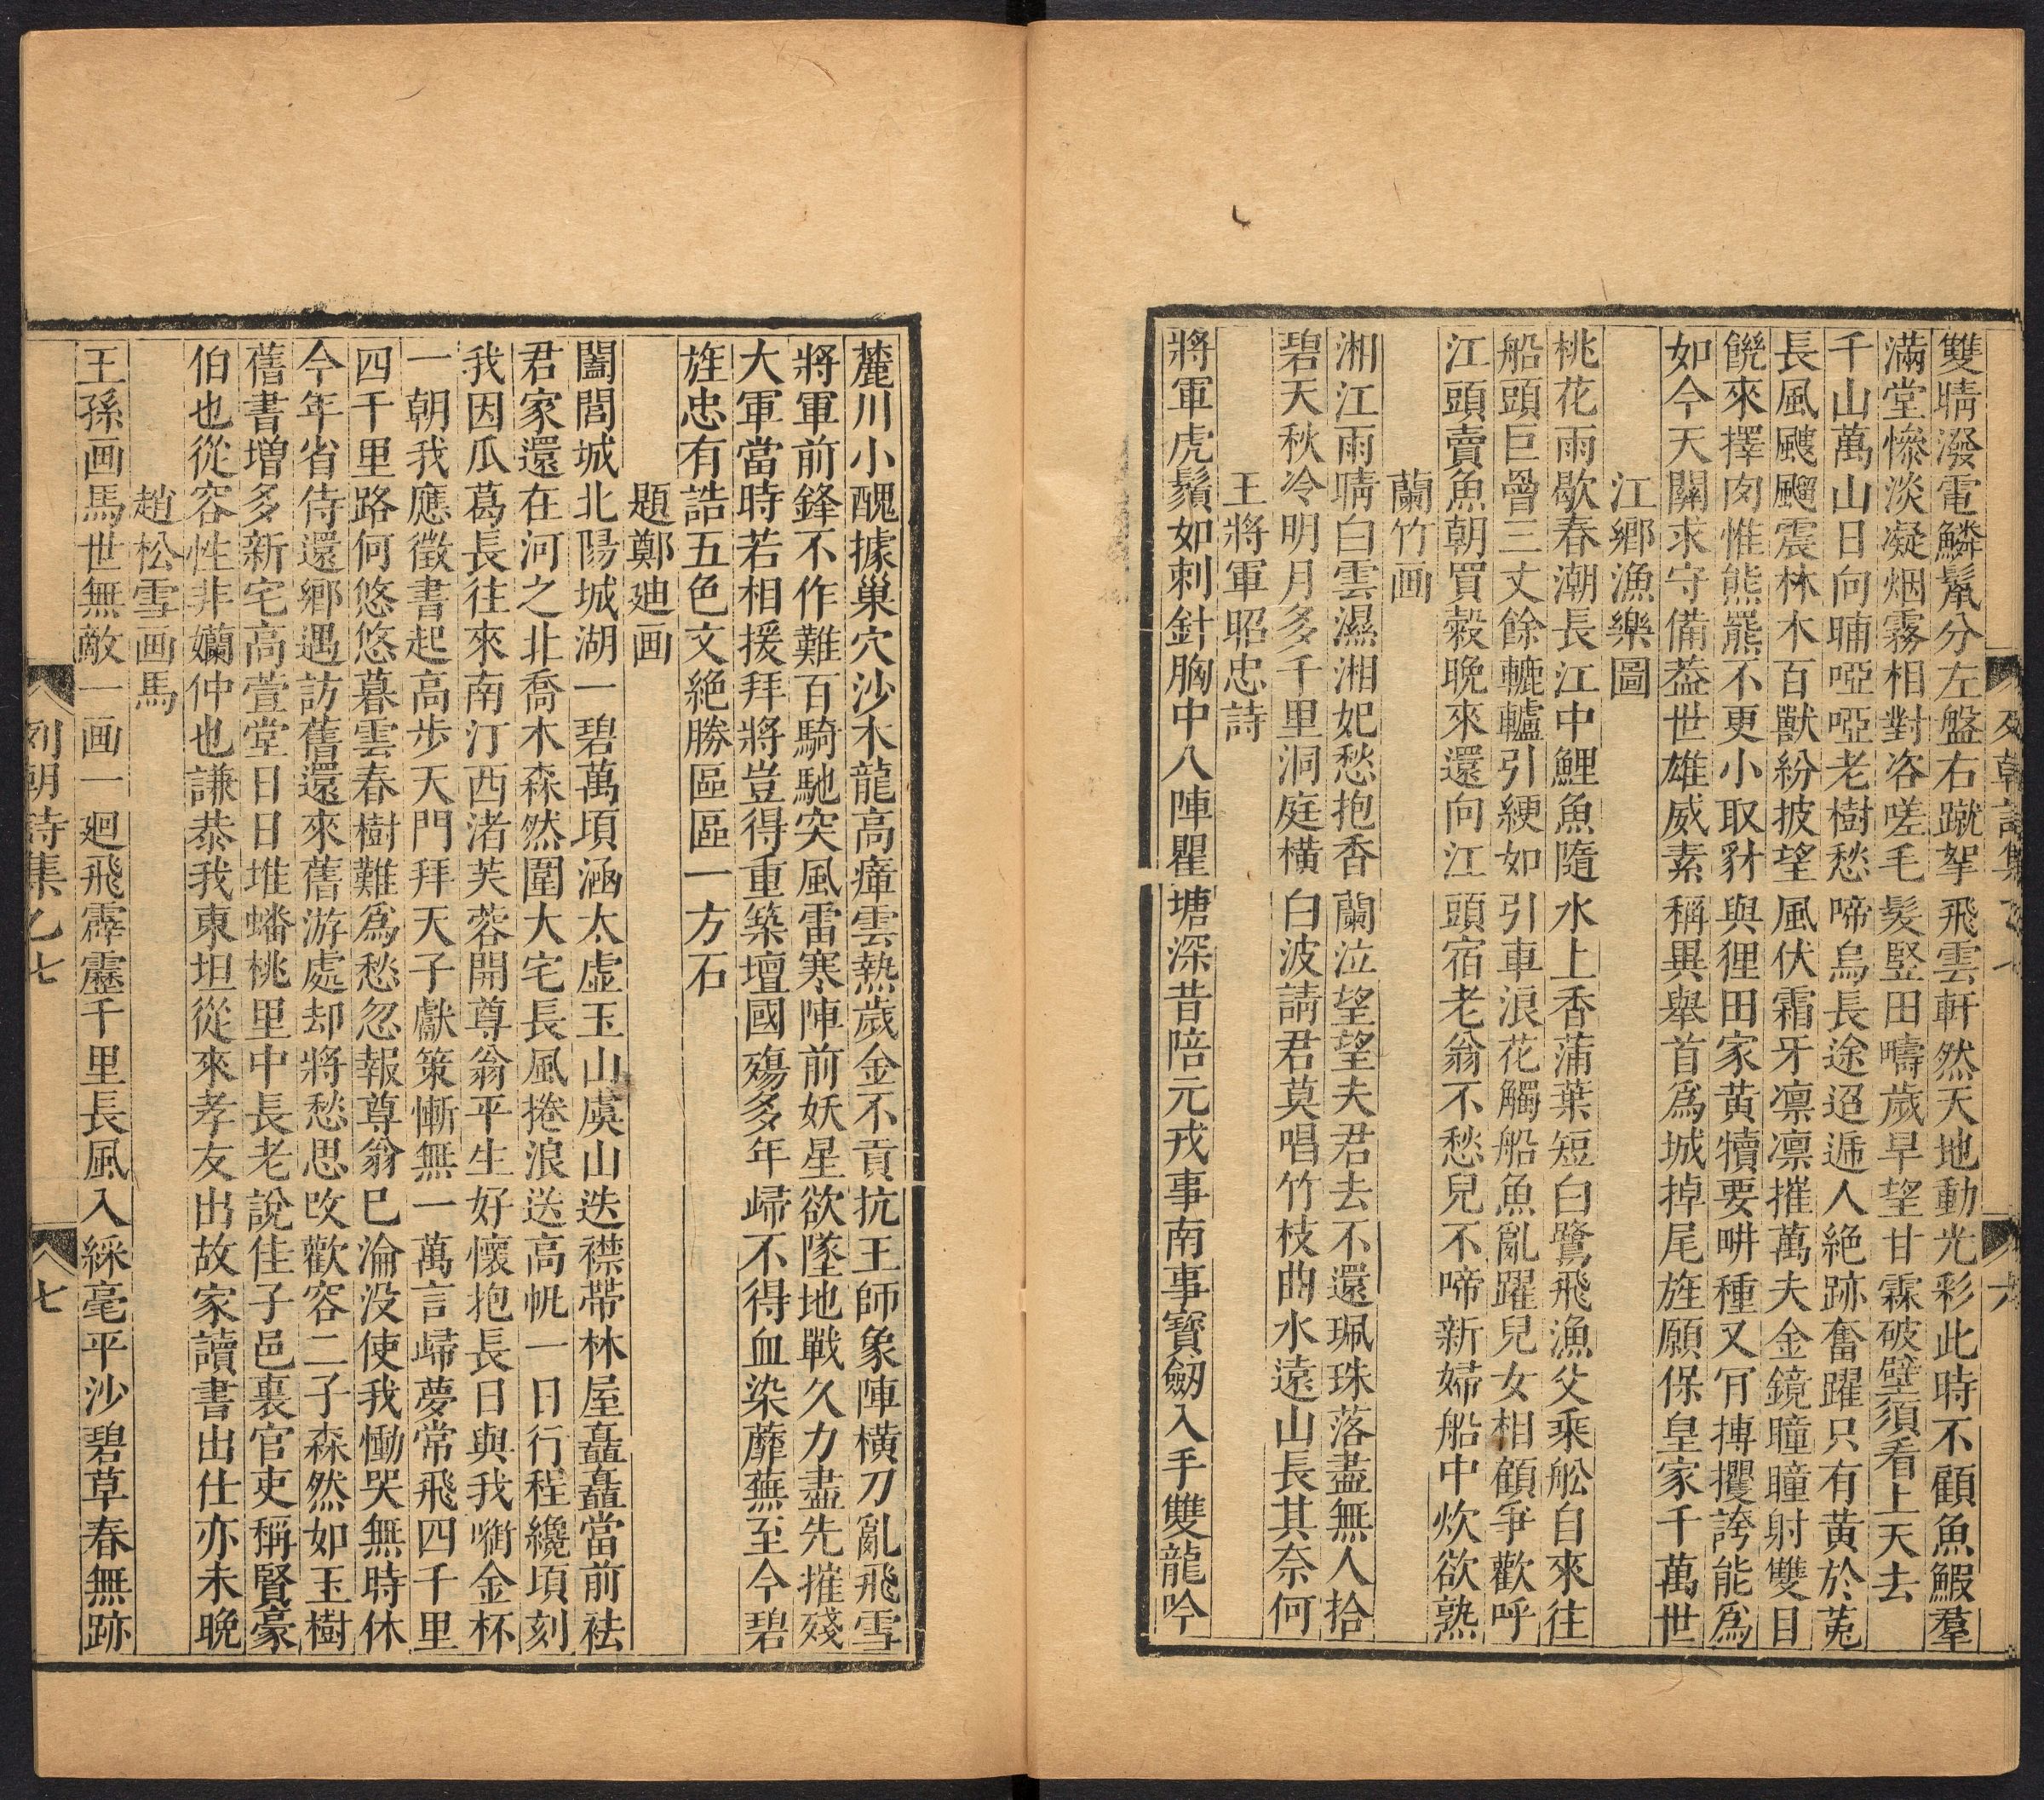 雙睛潑電鱗鬣分左盤右蹴拏飛雲軒然天地動光彩此時不顧魚鰕羣
滿堂慘淡凝烟霧相對咨嗟毛髮竪田疇歲旱望甘霖破壁須看上天去
千山萬山日向晡啞啞老樹愁啼烏長途迢遞人絶跡奮躍只有黃於菟
長風颼飀震林木百獸紛披望風伏霜牙凛凛摧萬夫金鏡曈曈射雙目
饑來擇肉惟熊羆不更小取豺與狸田家黃犢要畊種又肎搏攫誇能爲
如今天關求守備葢世雄威素稱異舉首爲城掉尾旌願保皇家千萬世
江鄉漁樂圖
桃花雨歇春潮長江中鯉魚隨水上香蒲葉短白鷺飛漁父乘舩自來往
船頭巨罾三丈餘轆轤引綆如引車浪花觸船魚亂躍兒女相顧爭歡呼
江頭賣魚朝買穀晚來還向江頭宿老翁不愁兒不啼新婦船中炊欲熟
蘭竹画
湘江雨晴白雲濕湘妃愁抱香蘭泣望望夫君去不還珮珠落盡無人拾
碧天秋冷明月多千里洞庭橫白波請君莫唱竹枝曲水遠山長其奈何
王將軍昭忠詩
將軍虎鬚如刺針胸中八陣瞿塘深昔陪元戎事南事寶劒入手雙龍吟
麓川小醜據巢穴沙木龍高瘴雲熱歲金不貢抗王師象陣橫刀亂飛雪
將軍前鋒不作難百騎馳突風雷寒陣前妖星欲墜地戰久力盡先摧殘
大軍當時若相援拜將豈得重築壇國殤多年歸不得血染蘼蕪至今碧
旌忠有誥五色文絶勝區區一方石
題鄭廸画
闔閭城北陽城湖一碧萬頃涵太虛玉山虞山迭襟帶林屋矗矗當前袪
君家還在河之北喬木森然圍大宅長風捲浪送高帆一日行程纔頃刻
我因瓜葛長往來南汀西渚芙蓉開尊翁平生好懷抱長日與我啣金杯
一朝我應徵書起高步天門拜天子獻策慚無一萬言歸夢常飛四千里
四千里路何悠悠暮雲春樹難爲愁忽報尊翁巳淪没使我慟哭無時休
今年省侍還鄉遇訪舊還來舊游處却將愁思攺歡容二子森然如玉樹
舊書增多新宅高萱堂日日堆蟠桃里中長老說佳子邑裏官吏稱賢豪
伯也從容性非孄仲也謙恭我東坦從來孝友出故家讀書出仕亦未晚
趙松雪画馬
王孫画馬世無敵一画一廻飛霹靂千里長風入綵毫平沙碧草春無跡
列朝詩集乙七
七